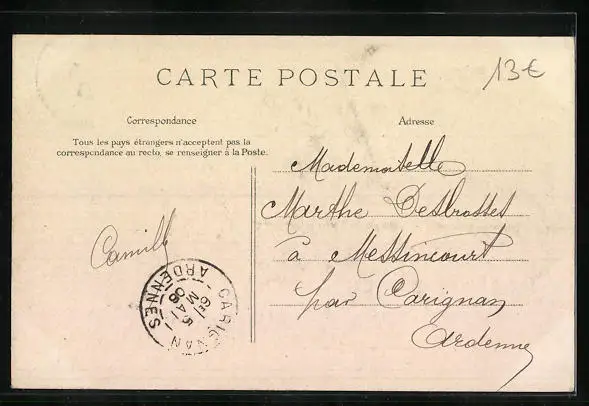 CARTE POSTALE
13€
Correspondance
Adresse
Tous les pays étrangers n'acceptent pas la
correspondance au recto, se renseigner à la Poste.
Mademoiselle
Marthe Desbrosses
à Messincourt
par Carignan
Ardennes
Camille
CARIGNAN
ARDENNES